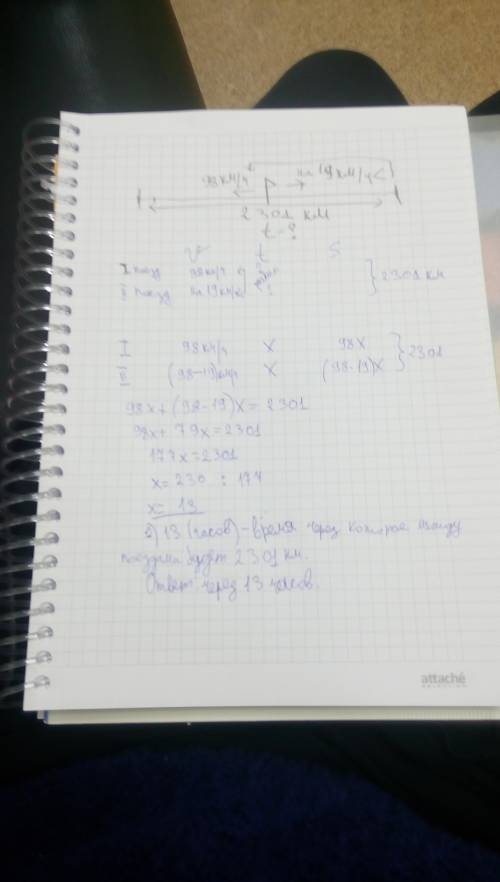 98 км/ч на 19 км/ч <
2301 км
t - ?
v t S
I поезд 98 км/ч ? } 2301 км
II поезд на 19 км/ч < ?
I 98 км/ч x 98x } 2301
II (98-19) км/ч x (98-19)x
98x + (98-19)x = 2301
98x + 79x = 2301
177x = 2301
x = 230 : 177
x = 13
13 (часов) - время через которое между
поездами будет 2301 км.
Ответ через 13 часов.
attaché